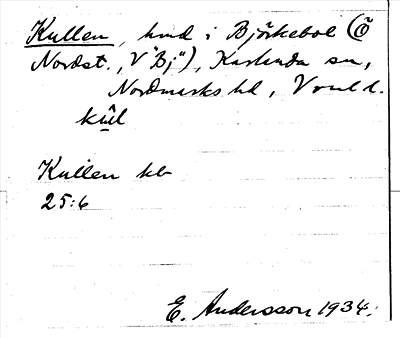 Kullen, hmd i Björkebol (Ö
Nordst., V "Bj"), Karlanda sn,
Nordmarks hd, Vrml d.
kul
Kullen hb
25:6
E. Andersson 1934.